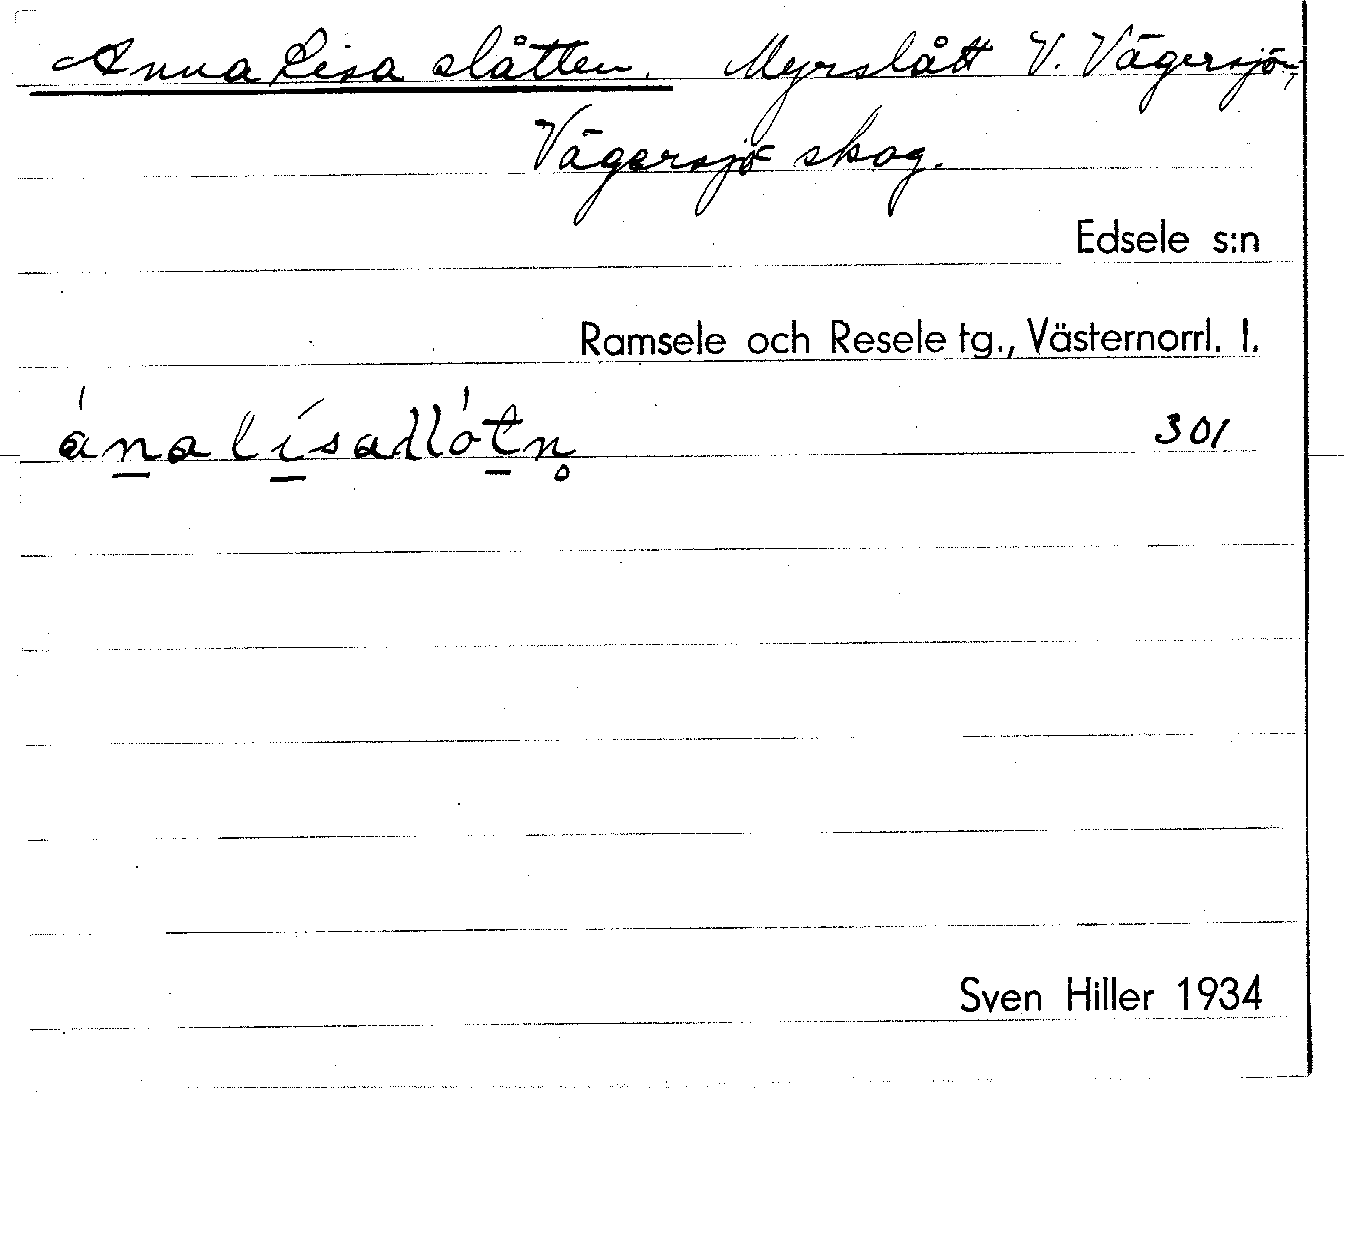 Anna Lisa slåtten. Myrslått V. Vägersjön,
Vägersjö skog.
Edsele s:n
Ramsele och Resele tg., Västernorrl. l.
301
Sven Hiller 1934